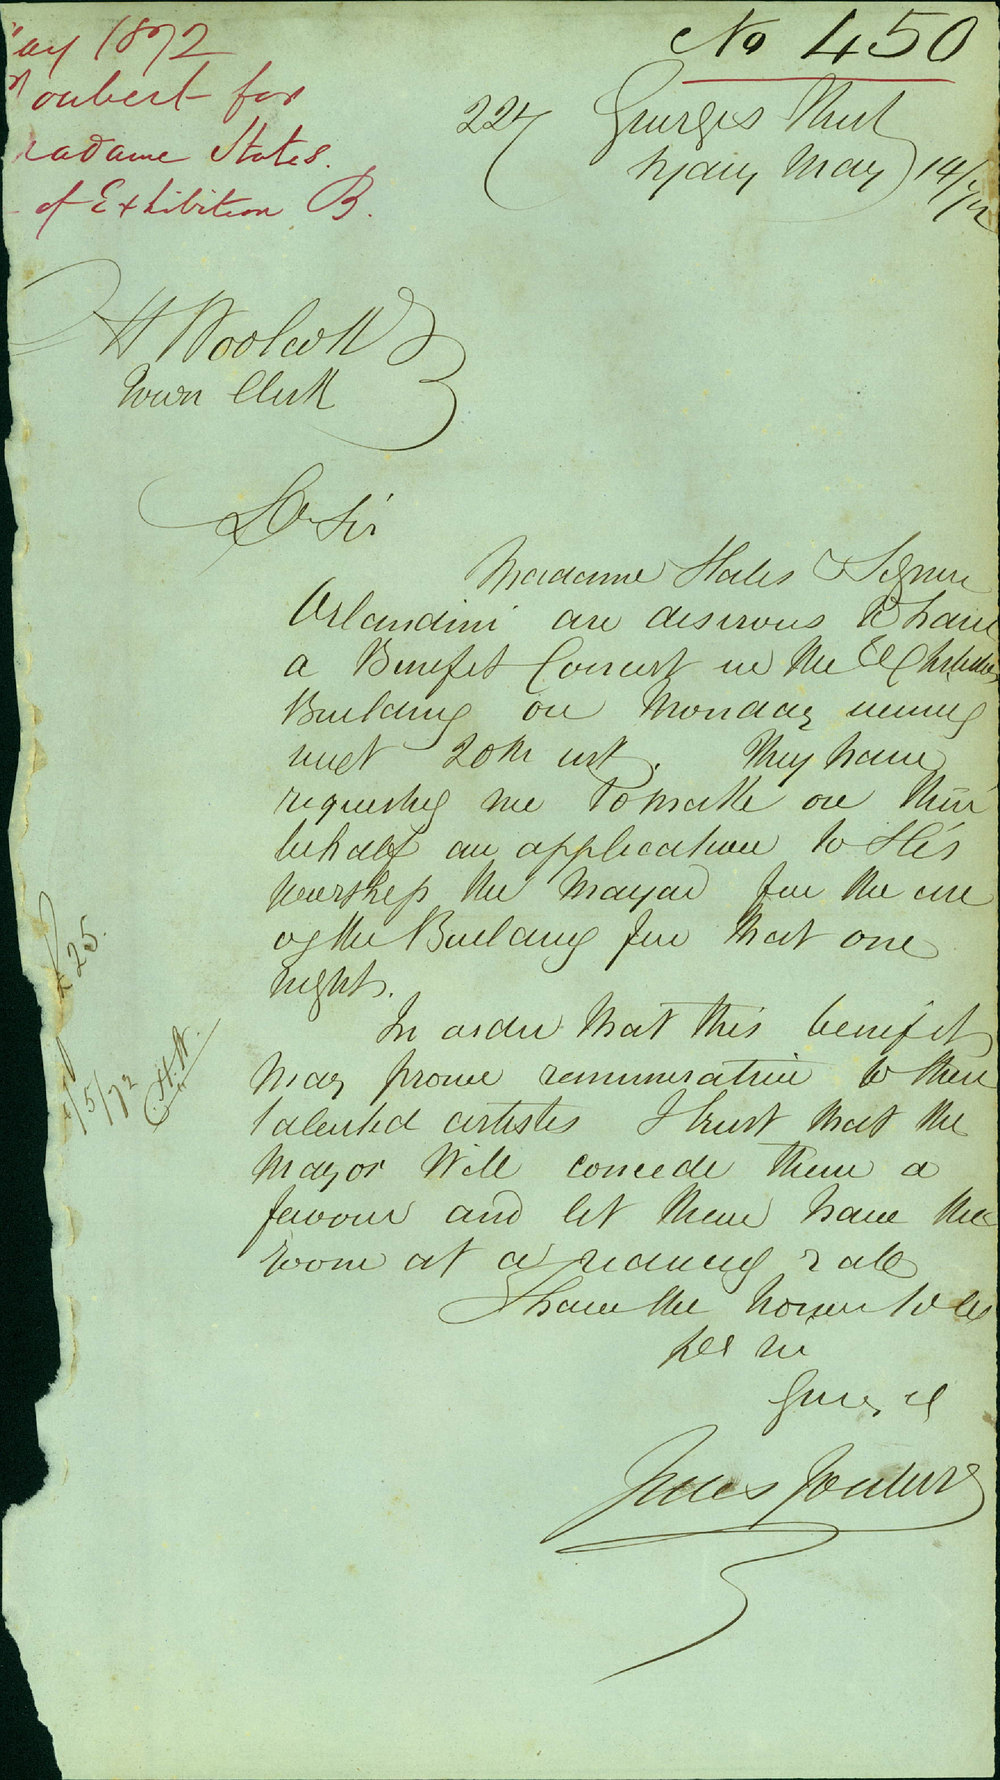 ay 1872
oubert for
adame States.
of Exhibition B.
No 450
227 Georges Street
Sydney May 14/72
H Woolcott
Town Clerk
Dr Sir
Madame States & Signor
Orlandini are desirous to have
a Benefit Concert in the Exhibition
Building on Monday evening
next 20th inst. They have
requested me to make on their
behalf an application to His
Worship the Mayor for the use
of the Building for that one
night.
In order that this benefit
may prove remunerative to these
talented artistes I trust that the
Mayor Will concede them a
favour and let them have the
room at a reduced rate
I have the honour to be
Jules Joubert
£25.
/5/72
C.H.W.